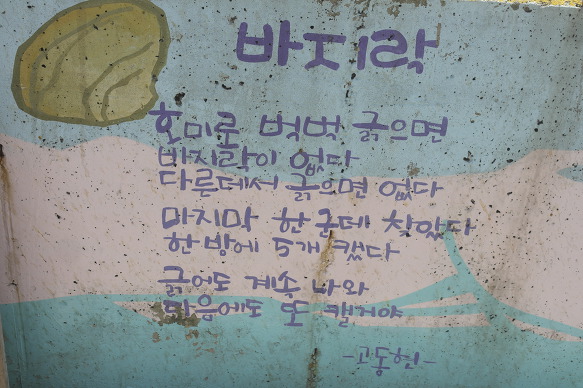 바지락
호미로 벅벅 긁으면
바지락이 없다
다른데서 긁으면 없다
마지막 한 군데 찾았다
한 방에 5개 캤다
긁어도 계속 나와
다음에도 또 캘거야
-고동현-